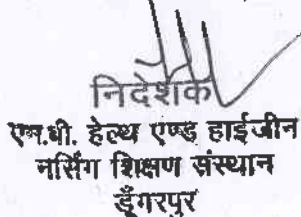 निदेशक
एम.बी. हेल्थ एण्ड हाईजीन
नर्सिंग शिक्षण संस्थान
डूँगरपुर